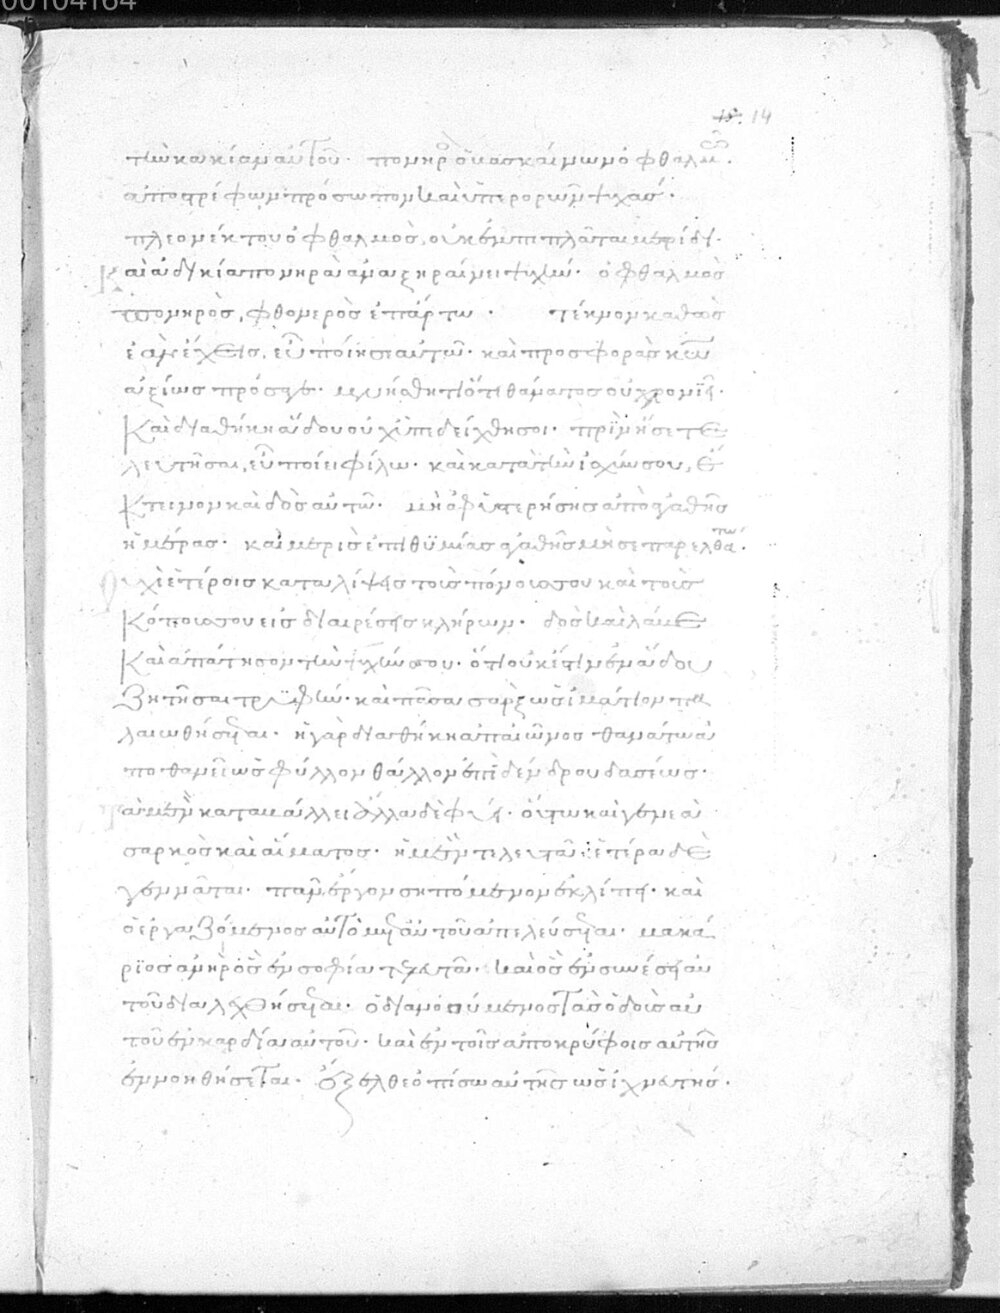 00104164
14
τὴν κακίαν αὐτοῦ· πονηρὸς ὁ βασκαίνων ὀφθαλμῶ·
ἀποστρέφων πρόσωπον καὶ ὑπερορῶν ψυχάσ·
πλεονέκτου ὀφθαλμὸσ, οὐκ ἐμπιπλᾶται μερίδι·
Καὶ ἀδικία πονηρὰ ἀναξηραίνει ψυχήν· ὀφθαλμὸσ
πονηρὸσ, φθονερὸσ ἐπ' ἄρτω· τέκνον καθὼσ
ἐὰν ἔχεισ, εὖ ποίει σεαυτῶ· καὶ προσφορὰσ κω
ἀξίωσ πρόσαγε· μνήσθητι ὅτι θάνατοσ οὐ χρονιεῖ·
Καὶ διαθήκη ἅδου οὐχ ὑπεδείχθη σοι· πρίν ἢ σε τε
λευτῆσαι, εὖ ποίει φίλω· καὶ κατὰ τὴν ἰσχύν σου, ἔ
κτεινον καὶ δὸσ αὐτῶ· μὴ ἀφυστερήσησ ἀπὸ ἀγαθῆσ
ἡμέρασ· καὶ μερὶσ ἐπιθυμίασ ἀγαθῆσ μή σε παρελθάτω·
Οὐχὶ ἑτέροισ καταλείψεισ τοὺσ πόνουσ σου καὶ τοὺσ
Κόπουσ σου εἰσ διαίρεσιν κλήρων· δὸσ καὶ λάβε
Καὶ ἀπάτησον τὴν ψυχήν σου· ὅτι οὐκ ἔστιν ἐν ἅδου
ζητῆσαι τρυφήν· καὶ πᾶσα σὰρξ ὡσ ἱμάτιον πα
λαιωθήσεται· ἡ γὰρ διαθήκη ἀπ' αἰῶνοσ θανάτω ἀ
ποθανεῖ ὡσ φύλλον θάλλον ἐπὶ δένδρου δασέωσ·
τὰ μὲν καταβάλλει ἄλλα δὲ φύει· οὕτω καὶ γενεὰ
σαρκὸσ καὶ αἵματοσ· ἡ μὲν τελευτᾶ· ἑτέρα δὲ
γεννᾶται· πᾶν ἔργον σηπόμενον ἐκλείπει· καὶ
ὁ ἐργαζόμενοσ αὐτὸ μετ' αὐτοῦ ἀπελεύσεται· μακά
ριοσ ἀνὴρ ὃσ ἐν σοφία τελευτᾶ· καὶ ὃσ ἐν συνέσει αὐ
τοῦ διαλεχθήσεται· ὁ διανοούμενοσ τὰσ ὁδοὺσ αὐ
τοῦ ἐν καρδία αὐτοῦ· καὶ ἐν τοῖσ ἀποκρύφοισ αὐτῆσ
ἐννοηθήσεται· ἔξελθε ὀπίσω αὐτῆσ ὡσ ἰχνευτήσ·